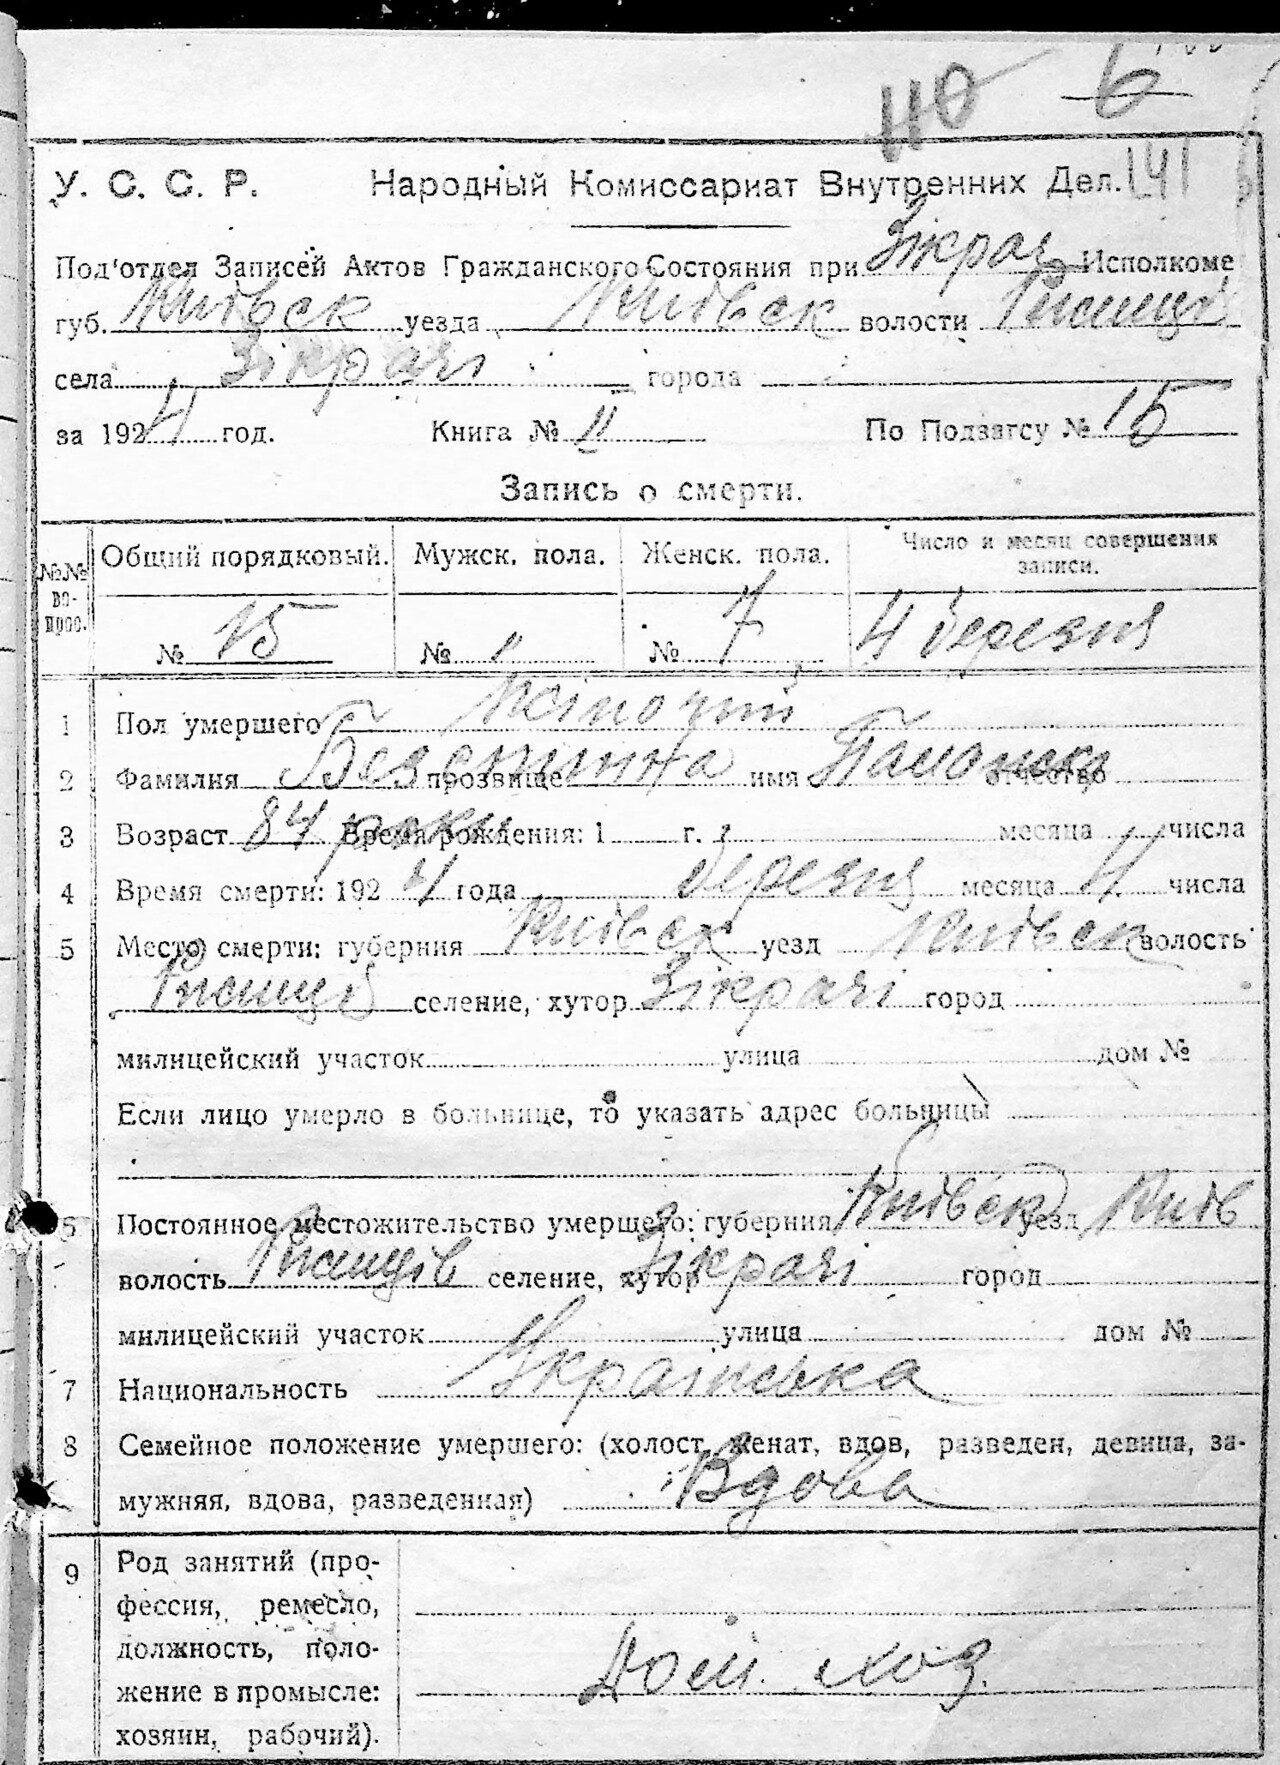 110 6
У. С. С. Р. Народный Комиссариат Внутренних Дел. 141
Под'отдел Записей Актов Гражданского Состояния при Зікрач Исполкоме
губ. Київск уезда Київск волости Ржищів
села Зікрачі города
за 1924 год. Книга № II По Подзагсу № 15
Запись о смерти.
№№ вопрос. Общий порядковый. Мужск. пола. Женск. пола. Число и месяц совершения записи.
№ 15 № " № 7 4 березня
1 Пол умершего Жіночий
2 Фамилия прозвище имя отчество
3 Возраст 84 роки Время рождения: 1 г. месяца числа
4 Время смерти: 1924 года березня месяца 4 числа
5 Место смерти: губерния Київск уезд Київск волость
Ржищів селение, хутор Зікрачі город
милицейский участок улица дом №
Если лицо умерло в больнице, то указать адрес больницы
6 Постоянное местожительство умершего: губерния Київск уезд Київ
волость Ржищів селение, хутор Зікрачі город
милицейский участок улица дом №
7 Национальность Українська
8 Семейное положение умершего: (холост, женат, вдов, разведен, девица, за-
мужняя, вдова, разведенная) Вдова
9 Род занятий (про-
фессия, ремесло,
должность, поло-
жение в промысле: Дом. хоз.
хозяин, рабочий).